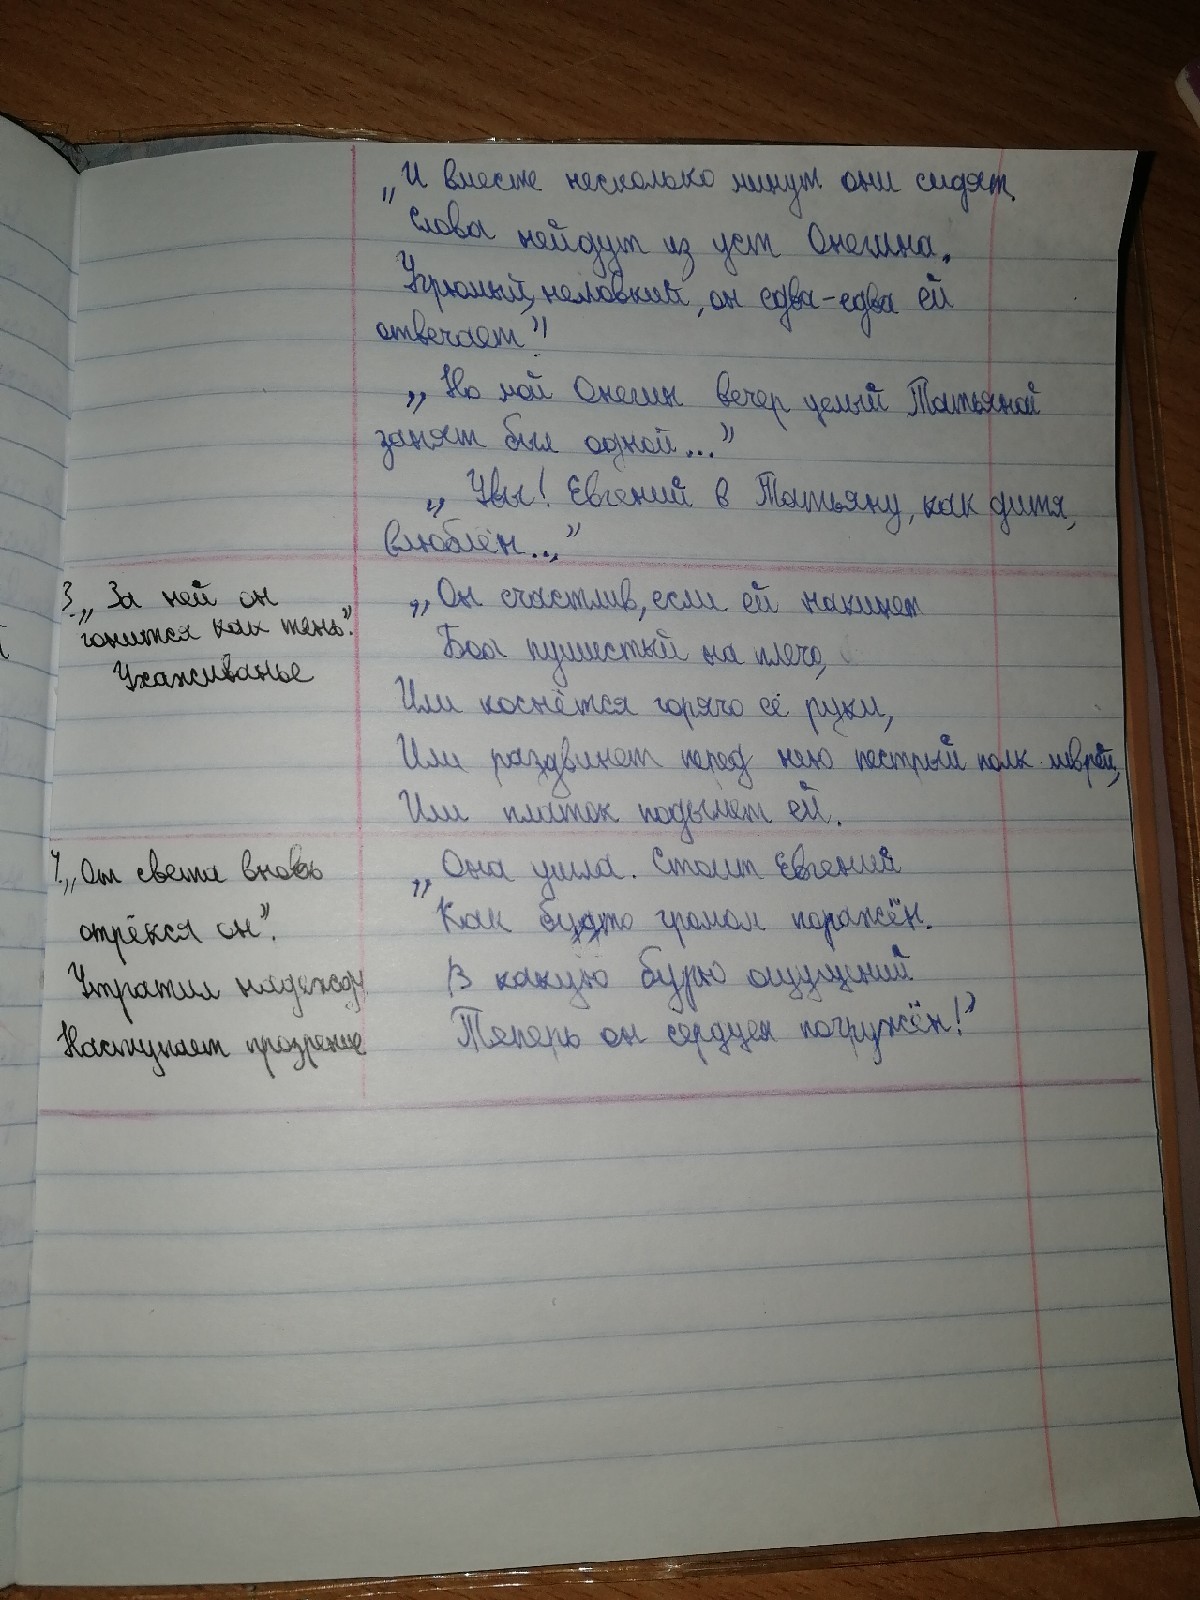 „И вместе несколько минут они сидят,
Слова нейдут из уст Онегина.
Угрюмый, неловкий, он едва-едва ей
отвечает"!
„Но мой Онегин вечер целый Татьяной
занят был одной..."
„Увы! Евгений в Татьяну, как дитя,
влюблён..."
3. „За ней он
гонится как тень".
Ухаживанье
„Он счастлив, если ей накинет
Боа пушистый на плечо,
Или коснётся горячо её руки,
Или раздвинет перед нею пестрый полк ливрей,
Или платок подымет ей.
4. „От света вновь
отрёкся он".
Утратил надежду
Наступает прозрение
„Она ушла. Стоит Евгений
Как будто громом поражён.
В какую бурю ощущений
Теперь он сердцем погружён!"